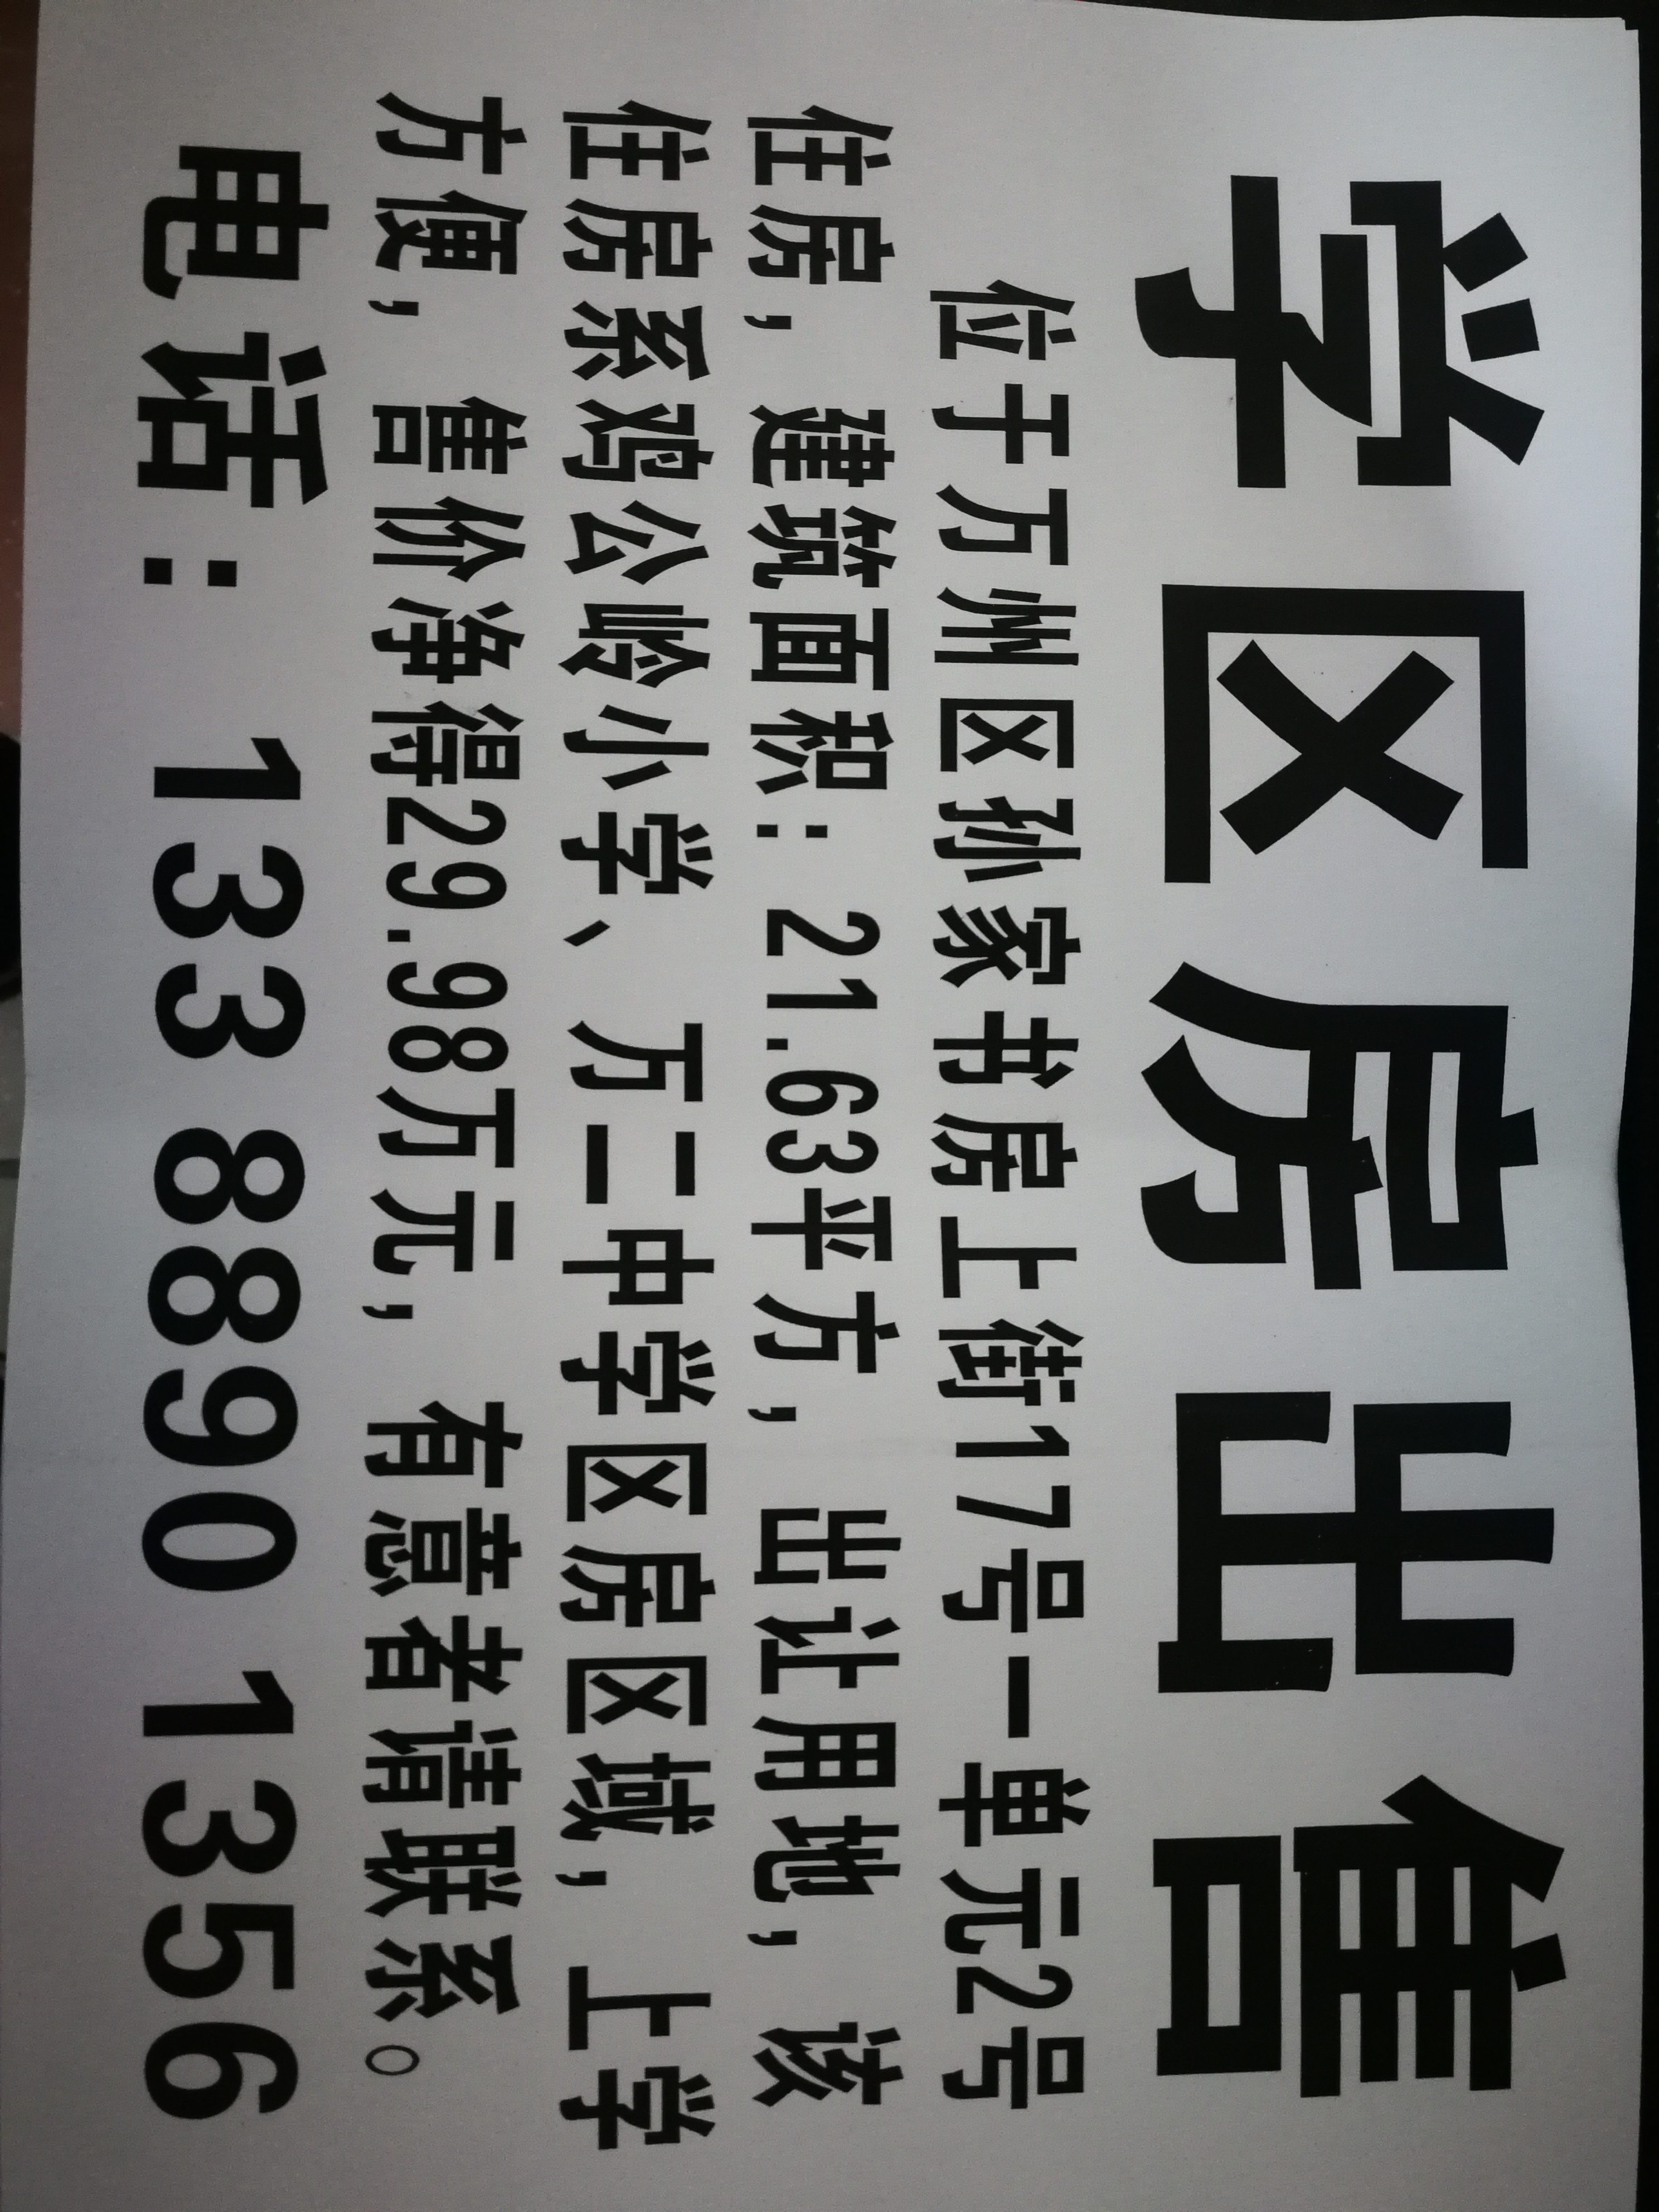 学区房出售
位于万州区孙家书房上街17号一单元2号
住房，建筑面积：21.63平方，出让用地，该
住房系鸡公岭小学、万二中学区房区域，上学
方便，售价净得29.98万元，有意者请联系。
电话：133 8890 1356